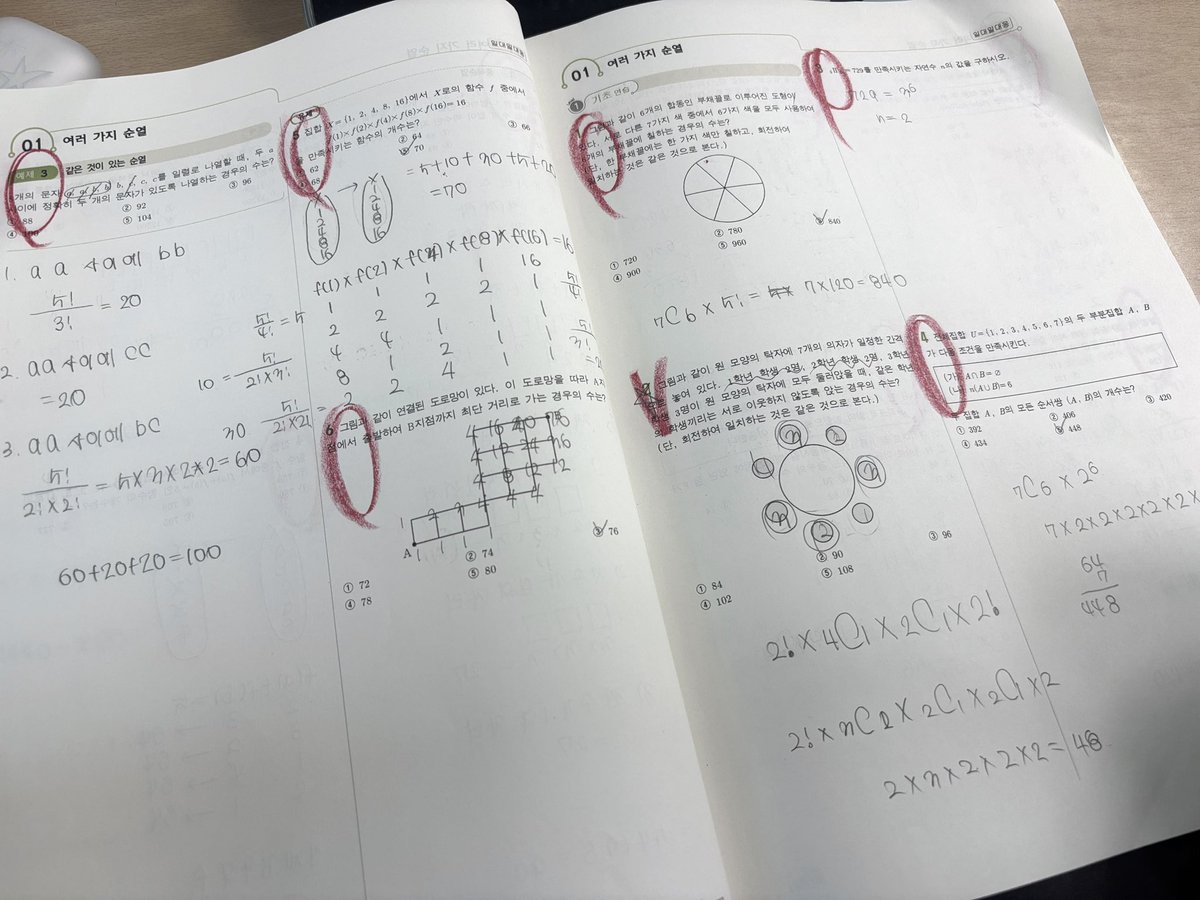 일대일대응
01 여러 가지 순열
예제 3 같은 것이 있는 순열
개의 문자 a, a, b, b, b, c, c, c를 일렬로 나열할 때, 두 a
사이에 정확히 두 개의 문자가 있도록 나열하는 경우의 수는?
① 88
② 92
③ 96
④ 100
⑤ 104
1. a a 사이에 bb
5!/3! = 20
2. aa 사이에 CC
= 20
3. aa 사이에 bC
5!/2!×2! = 5×3×2×2 = 60
60+20+20=100
5 집합 X={1, 2, 4, 8, 16}에서 X로의 함수 f 중에서
f(1)×f(2)×f(4)×f(8)×f(16)=16
을 만족시키는 함수의 개수는?
① 62
② 64
③ 66
④ 68
⑤ 70
=70
X → X
1 1
2 2
4 4
8 8
16 16
f(1)×f(2)×f(4)×f(8)×f(16)=16
1 1 1 1 16
5!/4! = 5
10 = 5!/2!×3!
30 5!/2!×2!
6 그림과 같이 연결된 도로망이 있다. 이 도로망을 따라 A지
점에서 출발하여 B지점까지 최단 거리로 가는 경우의 수는?
A
① 72
② 74
③ 76
④ 78
⑤ 80
일대일대응
01 여러 가지 순열
1 기초 연습
그림과 같이 6개의 합동인 부채꼴로 이루어진 도형이
있다. 서로 다른 7가지 색 중에서 6가지 색을 모두 사용하여
6개의 부채꼴에 칠하는 경우의 수는?
(단, 한 부채꼴에는 한 가지 색만 칠하고, 회전하여
일치하는 것은 같은 것으로 본다.)
① 720
② 780
③ 840
④ 900
⑤ 960
7C6 × 5! = 7×120=840
그림과 같이 원 모양의 탁자에 7개의 의자가 일정한 간격
으로 놓여 있다. 1학년 학생 2명, 2학년 학생 2명, 3학년
학생 3명이 원 모양의 탁자에 모두 둘러앉을 때, 같은 학년
의 학생끼리는 서로 이웃하지 않도록 앉는 경우의 수는?
(단, 회전하여 일치하는 것은 같은 것으로 본다.)
① 84
② 90
③ 96
④ 102
⑤ 108
2!×4C1×2C1×2!
2!×3C2×2C1×2C1×2
2×3×2×2×2=48
=729를 만족시키는 자연수 n의 값을 구하시오.
729 = n⁶
n=2
4 전체집합 U={1, 2, 3, 4, 5, 6, 7}의 두 부분집합 A, B
가 다음 조건을 만족시킨다.
(가) A∩B=∅
(나) n(A∪B)=6
두 집합 A, B의 모든 순서쌍 (A, B)의 개수는?
① 392
② 406
③ 420
④ 434
⑤ 448
7C6×2⁶
7×2×2×2×2×2×
64
7
448